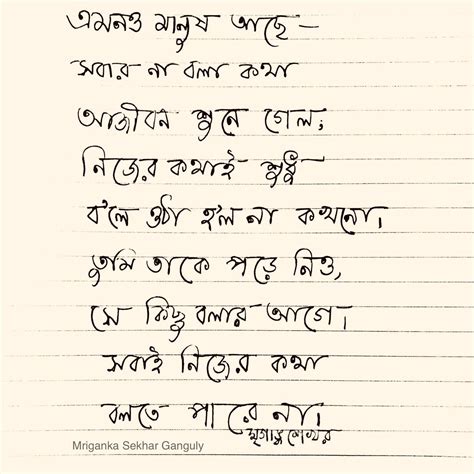 এমনও মানুষ আছে –
সবার না বলা কথা
আজীবন শুনে গেল;
নিজের কথাই শুধু
ব'লে ওঠা হ'ল না কখনো।
তুমি তাকে পড়ে নিও,
সে কিছু বলার আগে।
সবাই নিজের কথা
বলতে পারে না।
মৃগাঙ্কশেখর
Mriganka Sekhar Ganguly